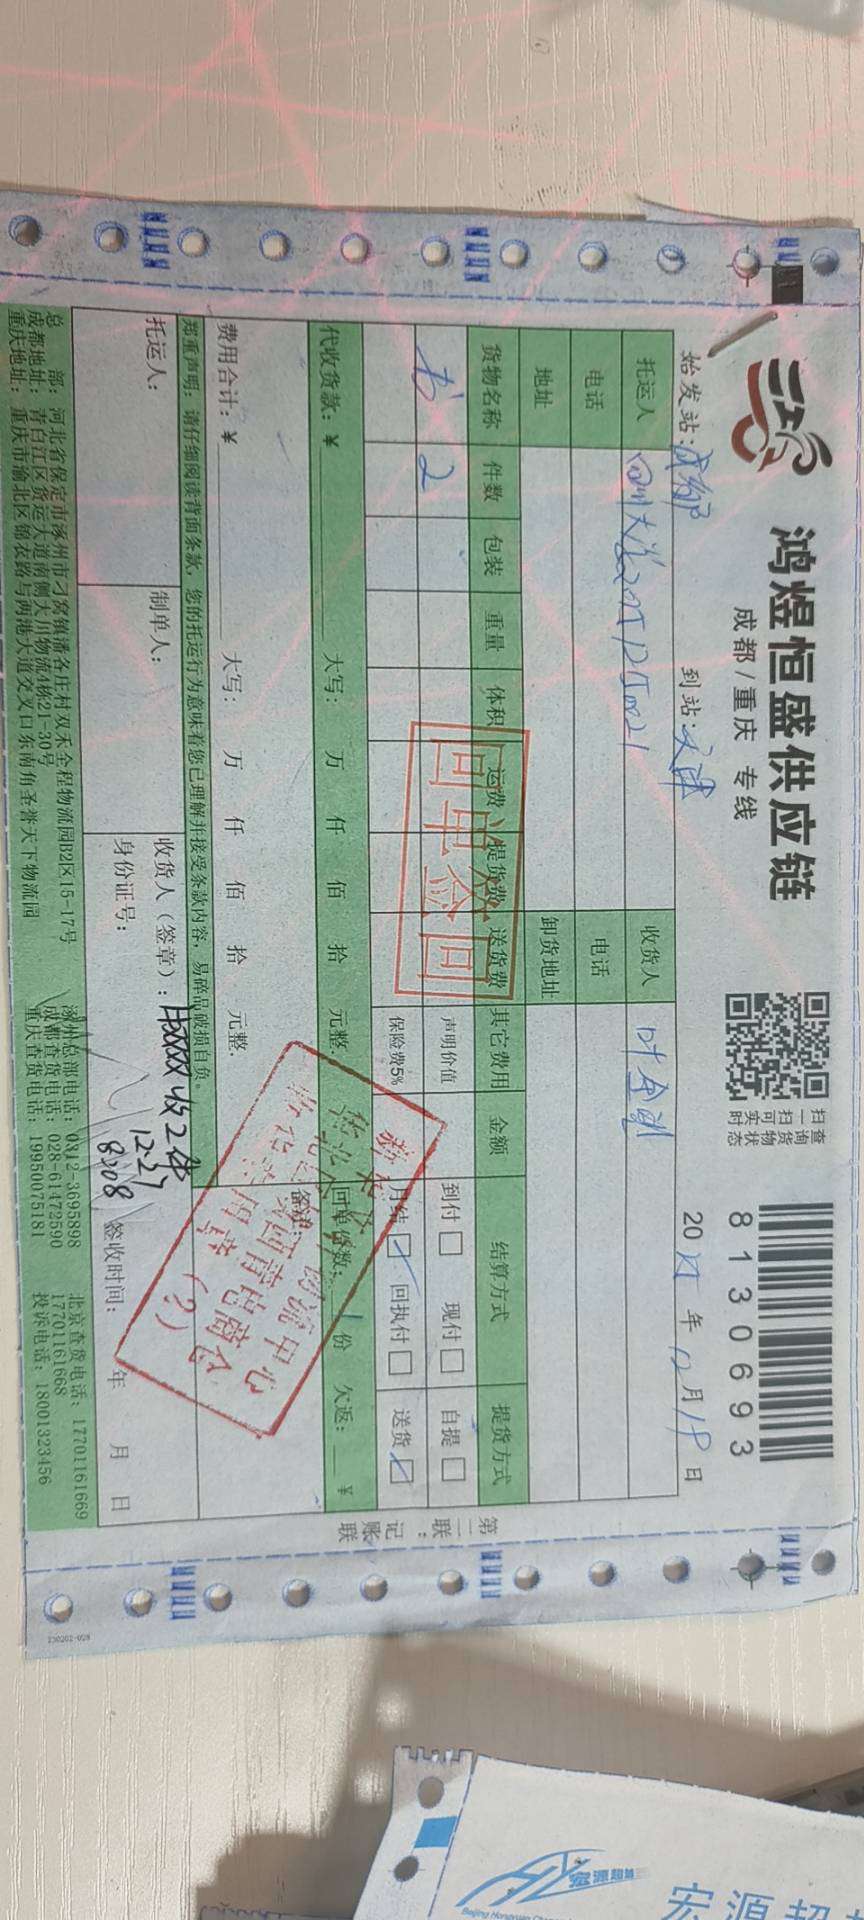 鸿煜恒盛供应链
成都/重庆 专线
扫一扫可实时
查询货物状态
8130693
始发站:成都
到站:天津
20 25 年 12 月 19 日
托运人
收货人
电话
电话
地址
卸货地址
货物名称 件数 包装 重量 体积 运费 提货费 送货费 其它费用 金额 结算方式 提货方式
书 2
声明价值
到付 现付 自提
保险费5%
月结 回执付 送货
代收货款:¥ 大写: 万 仟 佰 拾 元整. 回单份数: 1 份 欠返: ¥
费用合计:¥ 大写: 万 仟 佰 拾 元整.
备注:
郑重声明:请仔细阅读背面条款,您的托运行为意味着您已理解并接受条款内容,易碎品破损自负。
托运人:
制单人:
收货人(签章): 收2件
12.27
8208
身份证号:
签收时间: 年 月 日
总部:河北省保定市涿州市刁窝镇潘各庄村双禾全程物流园B2区15-17号
成都地址:青白江区货运大道南侧大川物流4栋21-30号
重庆地址:重庆市渝北区锦衣路与两港大道交叉口东南角圣誉天下物流园
涿州总部电话:0312-3695898
成都查货电话:028-61472590
重庆查货电话:19950075181
北京查货电话:17701161669
17701161668
投诉电话:18001323456
第二联:记账联
回单签回
宏源超越